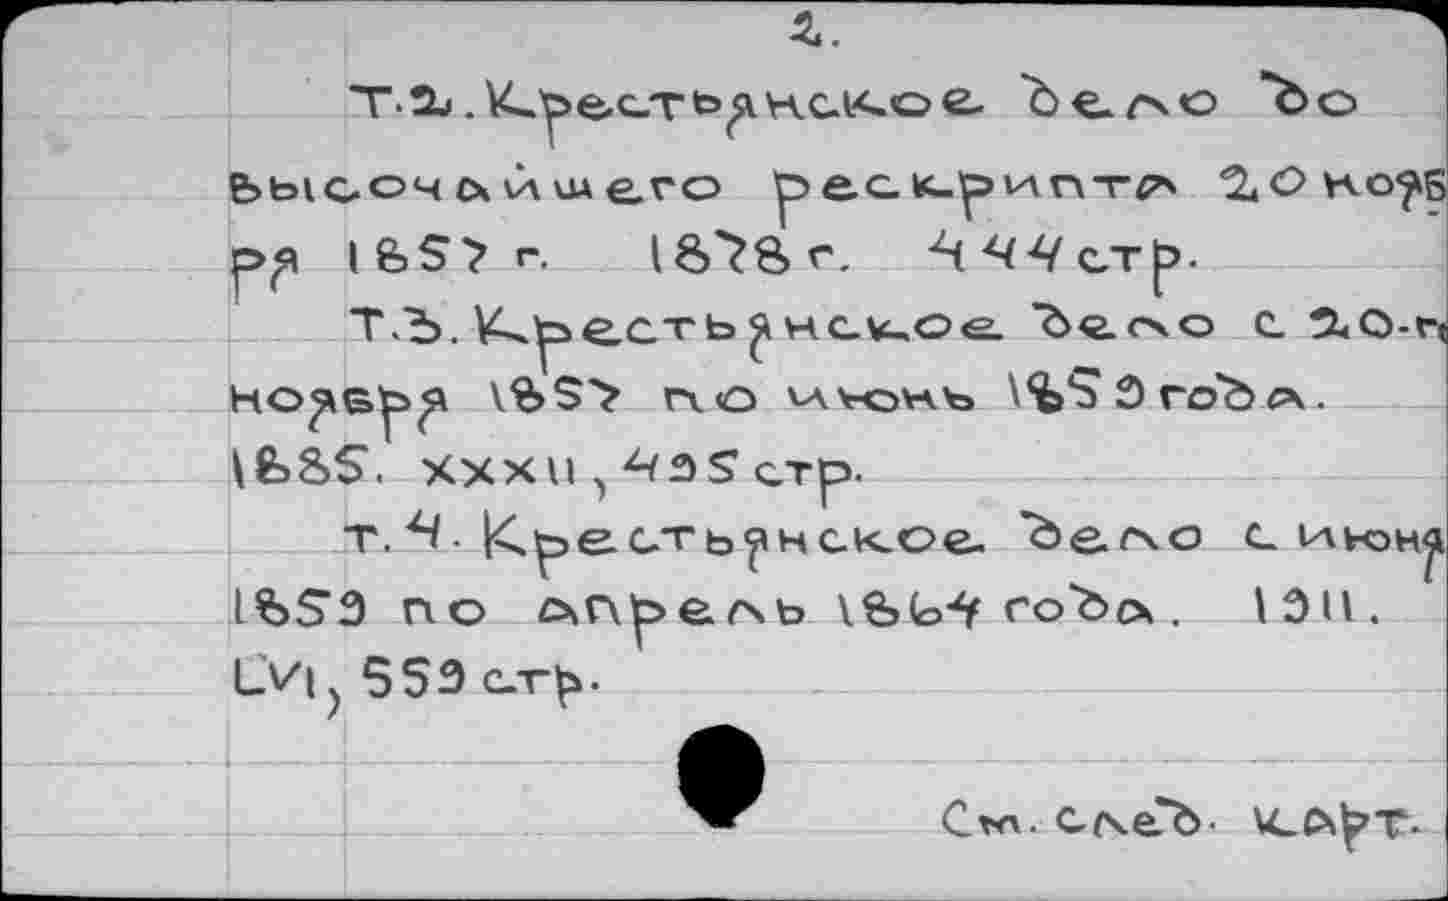 2.
Т.2. Крестьянское дело до
высочайшего рескрипта 20 нояб
ря 1857 г. 1878 г. 444 стр.
Т.3. Крестьянское дело с 20-г
ноября 1857 по июнь 1859 года.
1885. XXXII, 495 стр.
т. 4. Крестьянское дело с июня
1859 по апрель 1864 года. 1911.
LVI, 559 стр.
См. след. карт.